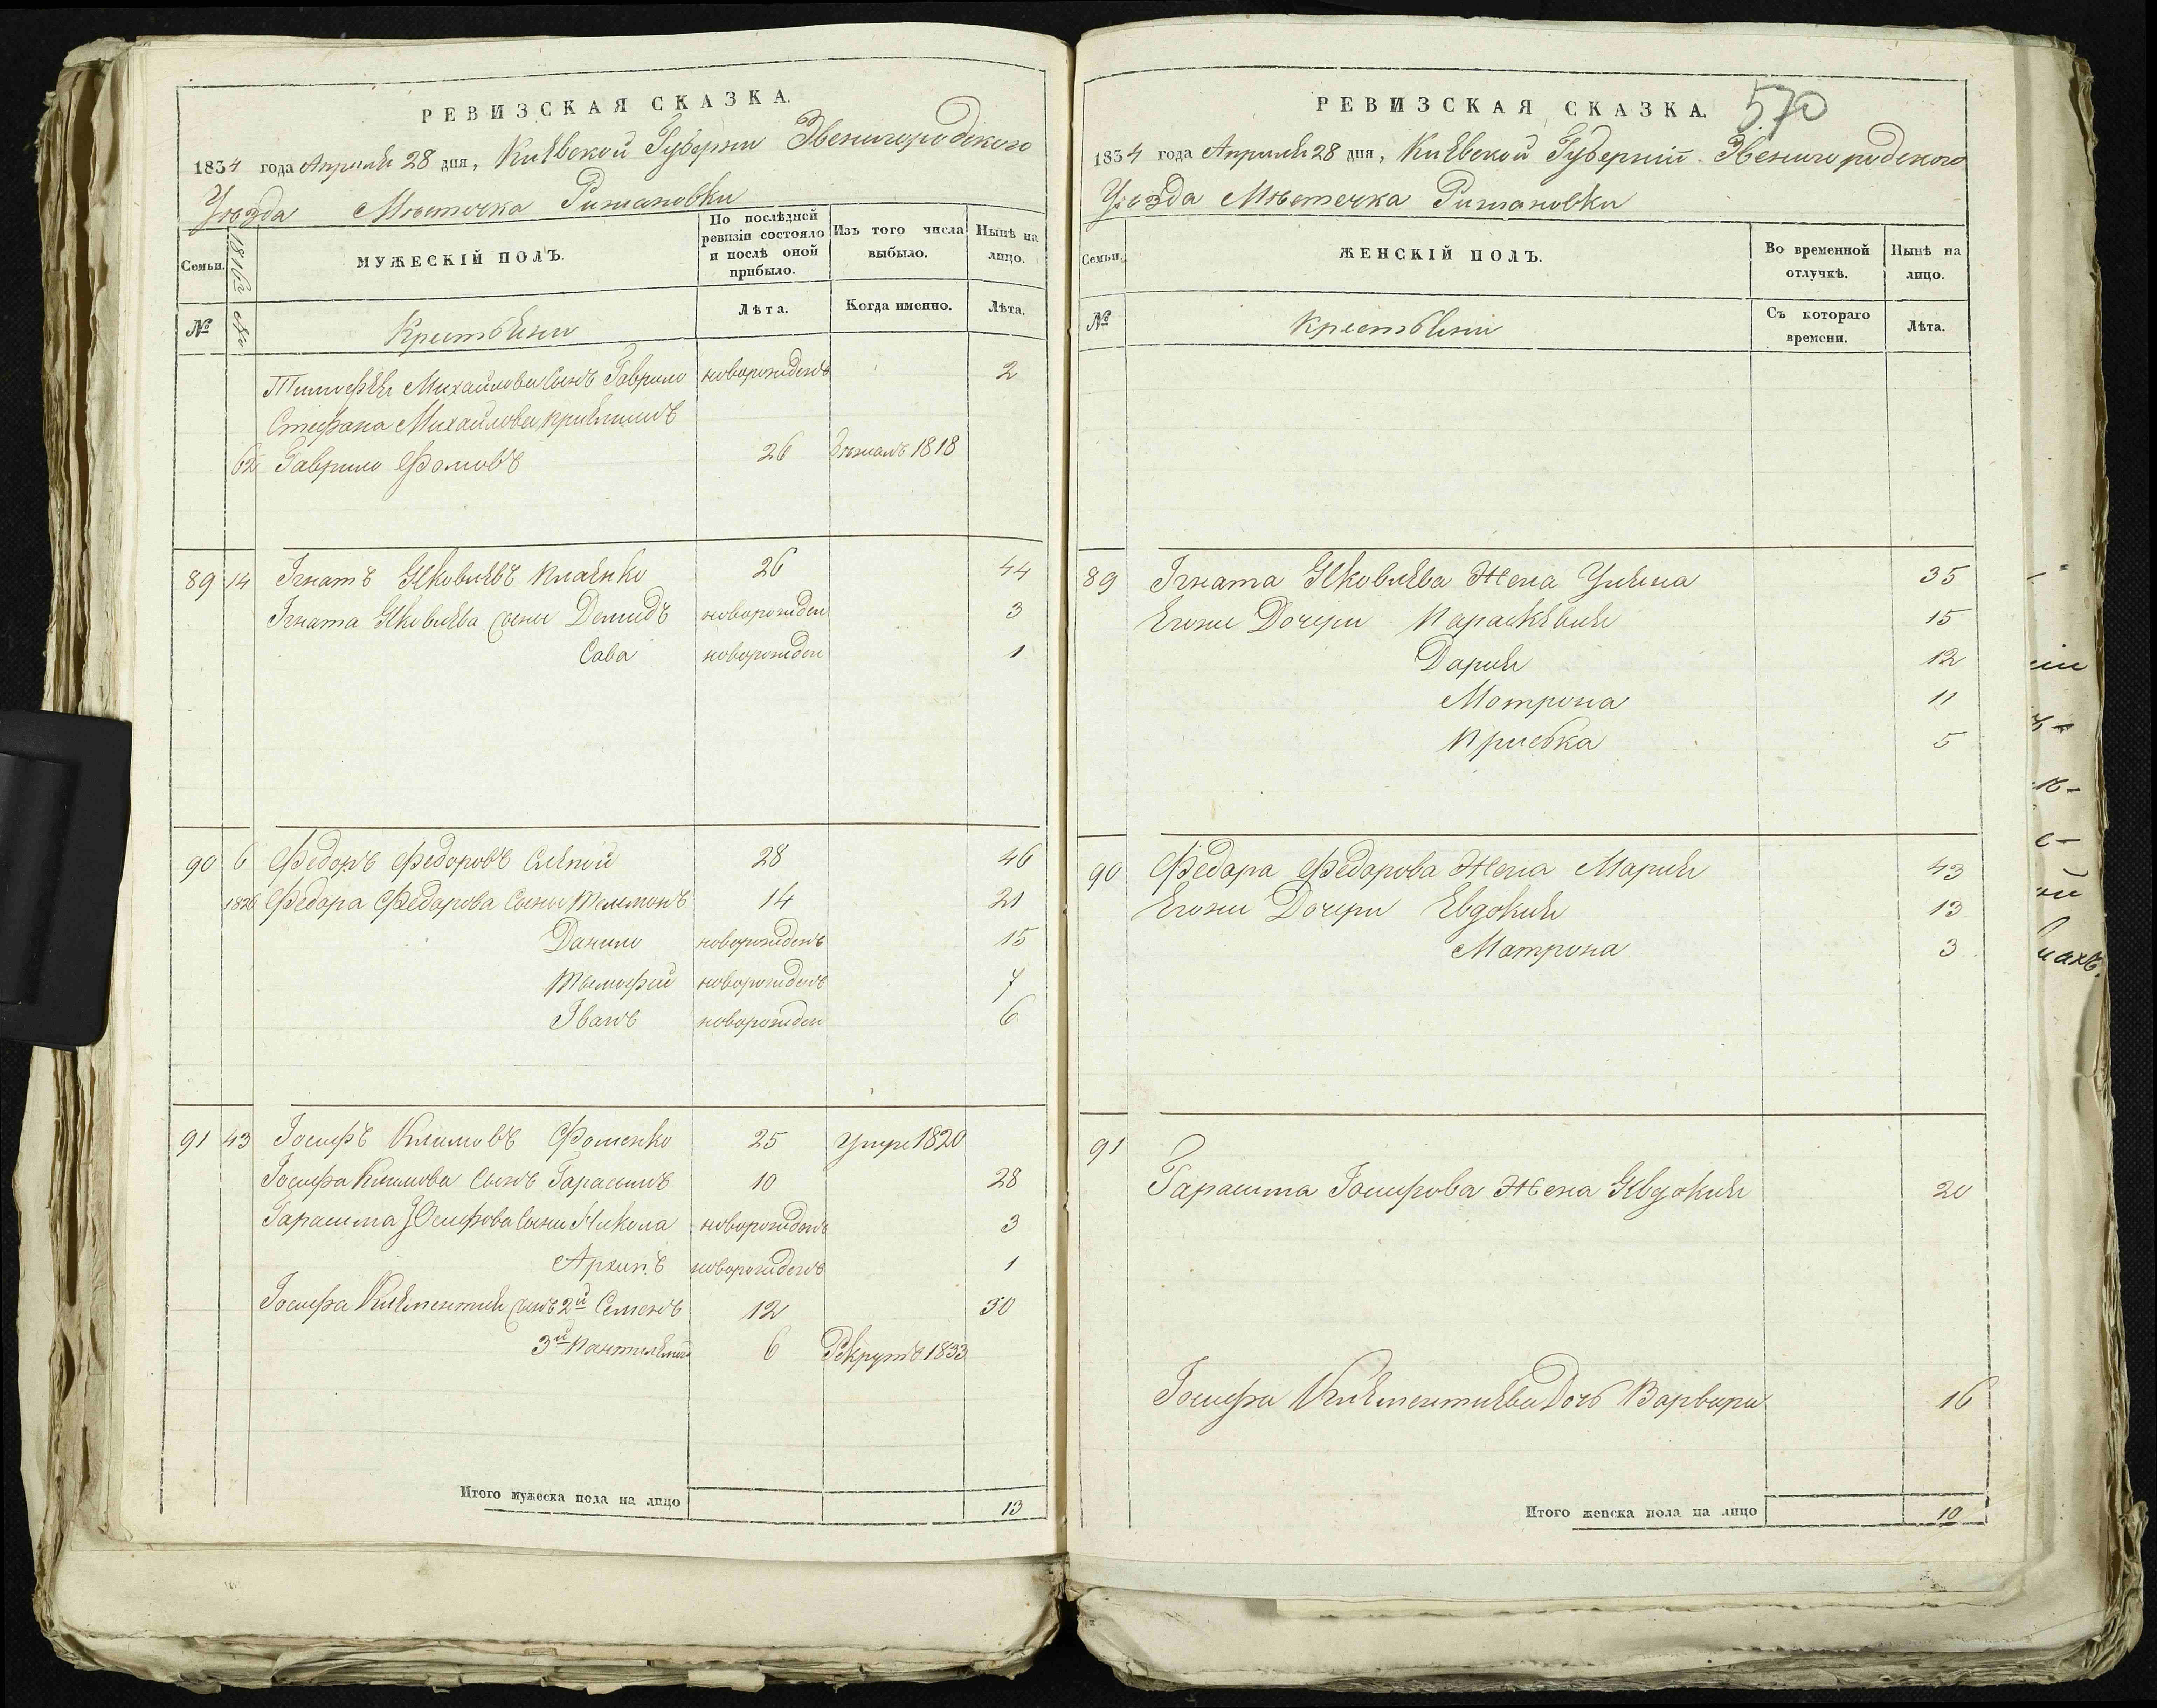 РЕВИЗСКАЯ СКАЗКА.
1834 года Апреля 28 дня, Киевской Губернии Звенигородского
Уѣзда Мѣстечка Рижановки
Семьи.
МУЖЕСКІЙ ПОЛЪ.
По послѣдней ревизіи состояло и послѣ оной прибыло.
Изъ того числа выбыло.
Нынѣ на лицо.
№
Крестьяни
Лѣта.
Когда именно.
Лѣта.
Тимофея Михайлова сынъ Гаврило новорожденъ 2
Стефана Михайлова
62 Гаврило Фомовъ 26 1818
89 14 Ігнатъ Яковлевъ 26 44
Ігната Яковлева сыны Демидъ новорожден 3
Сава новорожден 1
90 6 Федоръ Федоровъ Слепой 28 46
1826 Федора Федорова Сыны 14 21
Данило новорожденъ 15
Тымофей новорожденъ 7
Іванъ новорожден 6
91 43 Іосифъ Климовъ Фоменко 25 умре 1820
Іосифа Климова Сынъ Гарасымъ 10 28
Гарасима Іосифова Сыны Никола новорожденъ 3
Архипъ новорожденъ 1
Іосифа Клементия сынъ 2й Семенъ 12 30
3й 6 Рекрутъ 1833
Итого мужеска пола на лицо 13
РЕВИЗСКАЯ СКАЗКА.
570
1834 года Апреля 28 дня, Киевской Губерній Звенигородского
Уѣзда Мѣстечка Рижановки
Семьи.
ЖЕНСКІЙ ПОЛЪ.
Во временной отлучкѣ.
Нынѣ на лицо.
№
Крестьяни
Съ котораго времени.
Лѣта.
89 Ігната Яковлева Жена Уляна 35
Егоже Дочери Параскевия 15
Дария 12
Мотрона 11
Приська 5
90 Федора Федорова Жена Мария 43
Егоже Дочери Евдокия 13
Матрона 3
91
Гарасима Іосифова Жена Явдокия 20
Іосифа Клементиева Дочь Варвара 16
Итого женска пола на лицо 10